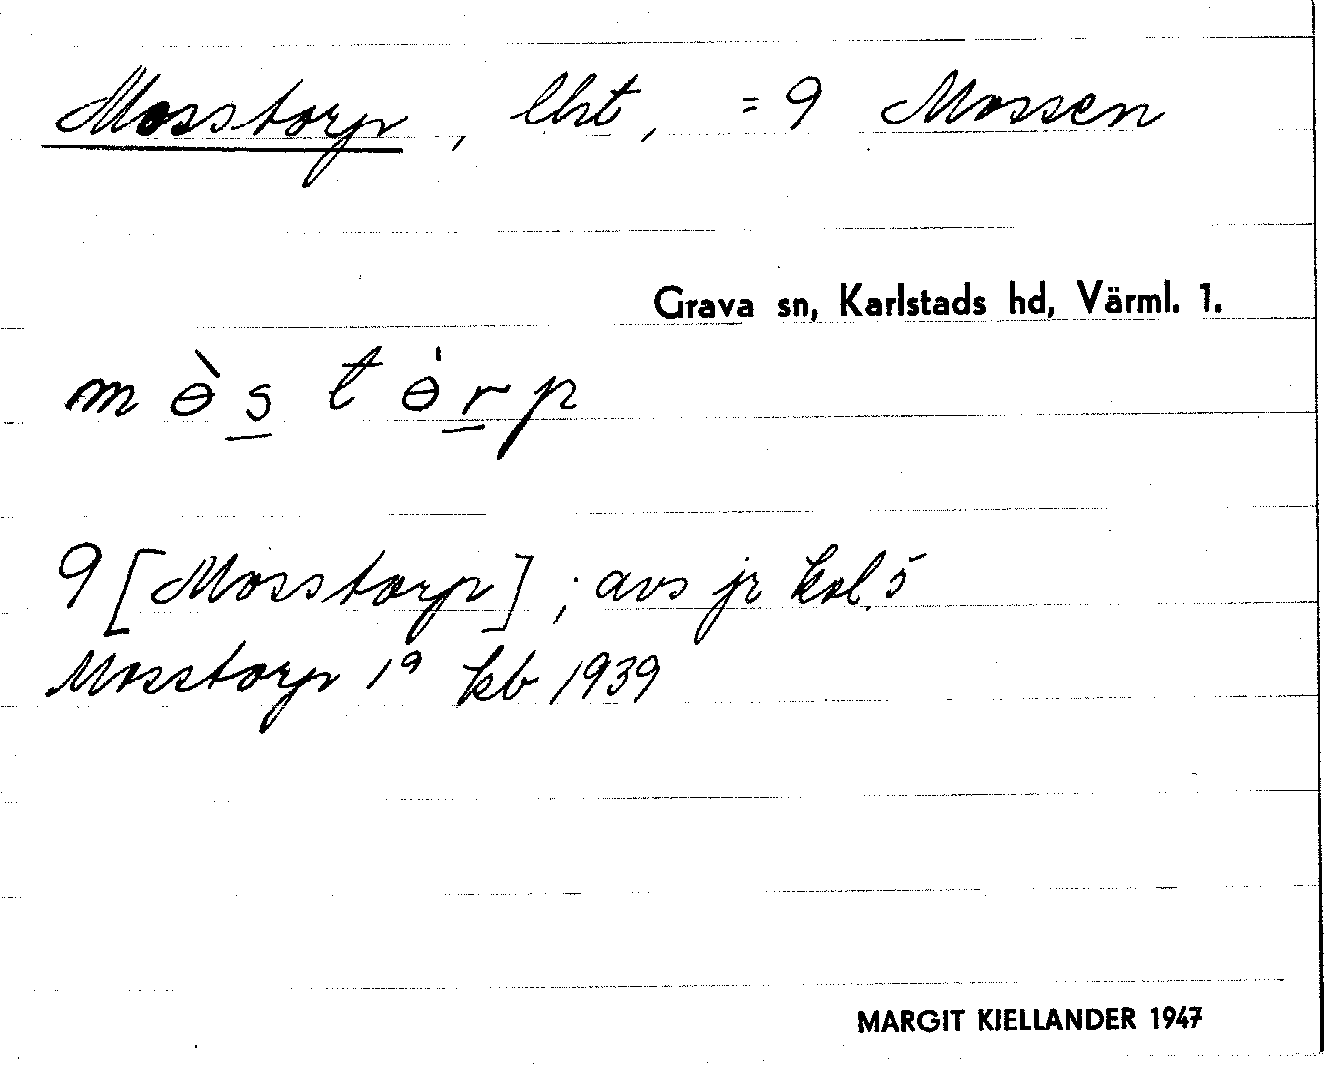 Mosstorp, lht, = 9 Mossen
Grava sn, Karlstads hd, Värml. 1.
mɵ̀s tɵ́rp
9 [Mosstorp]; avs jr kol. 5
Mosstorp 1⁹ kb 1939
MARGIT KJELLANDER 1947